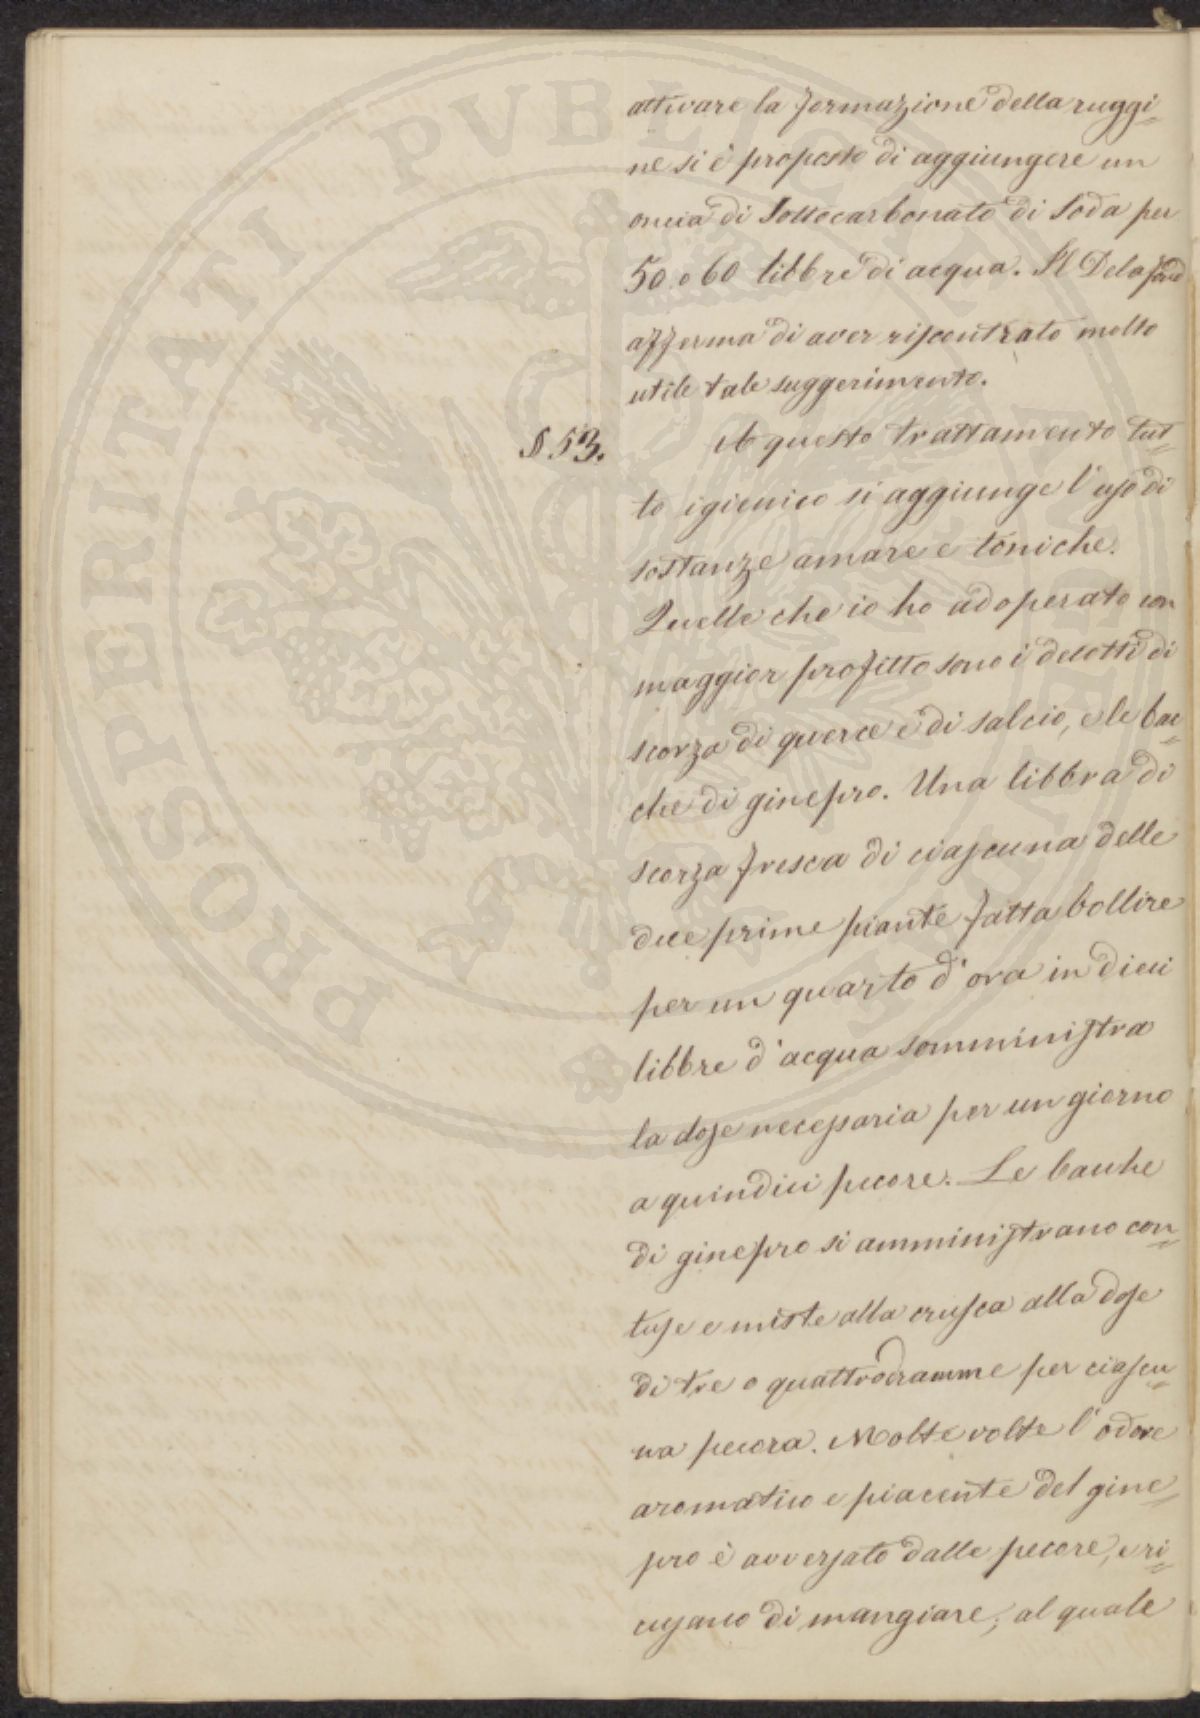 attivare la formazione della ruggi=
ne si è proposto di aggiungere un
oncia di Sottocarbonato di Soda per
50 o 60 libbre di acqua. Il Delafond
afferma di aver riscontrato molto
utile tale suggerimento.
§ 53. A questo trattamento tut=
to igienico si aggiunge l'uso di
sostanze amare e toniche.
Quelle che io ho adoperato con
maggior profitto sono i decotti di
scorza di querce e di salcio, e le bac=
che di ginepro. Una libbra di
scorza fresca di ciascuna delle
due prime piante fatta bollire
per un quarto d'ora in dieci
libbre d'acqua somministra
la dose necessaria per un giorno
a quindici pecore. Le bacche
di ginepro si amministrano con=
tuse e miste alla crusca alla dose
di tre o quattro dramme per ciascu=
na pecora. Molte volte l'odore
aromatico e piacente del gine=
pro è avversato dalle pecore, e ri=
cusano di mangiare, al quale
PROSPERITATI PVBLICAE AVGENDAE